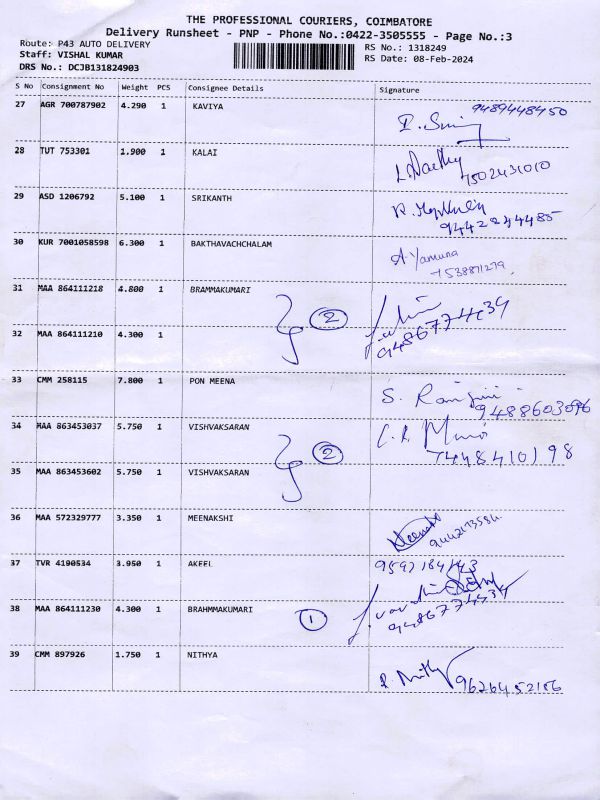 THE PROFESSIONAL COURIERS, COIMBATORE
Delivery Runsheet - PNP - Phone No.:0422-3505555 - Page No.:3
Route: P43 AUTO DELIVERY RS No.: 1318249
Staff: VISHAL KUMAR RS Date: 08-Feb-2024
DRS No.: DCJB131824903
S No Consignment No Weight PCS Consignee Details Signature
27 AGR 700787902 4.290 1 KAVIYA 9489448450
28 TUT 753301 1.900 1 KALAI 7502431010
29 ASD 1206792 5.100 1 SRIKANTH 9442244485
30 KUR 7001058598 6.300 1 BAKTHAVACHCHALAM A Yamuna
7538871279
31 MAA 864111218 4.800 1 BRAMMAKUMARI 2
9486774434
32 MAA 864111210 4.300 1
33 CMM 258115 7.800 1 PON MEENA S. Ranjini
9488603096
34 MAA 863453037 5.750 1 VISHVAKSARAN
7448410198
2
35 MAA 863453602 5.750 1 VISHVAKSARAN
36 MAA 572329777 3.350 1 MEENAKSHI
37 TVR 4190534 3.950 1 AKEEL 9597184143
38 MAA 864111230 4.300 1 BRAHMMAKUMARI 1 9486774434
39 CMM 897926 1.750 1 NITHYA
9626452186